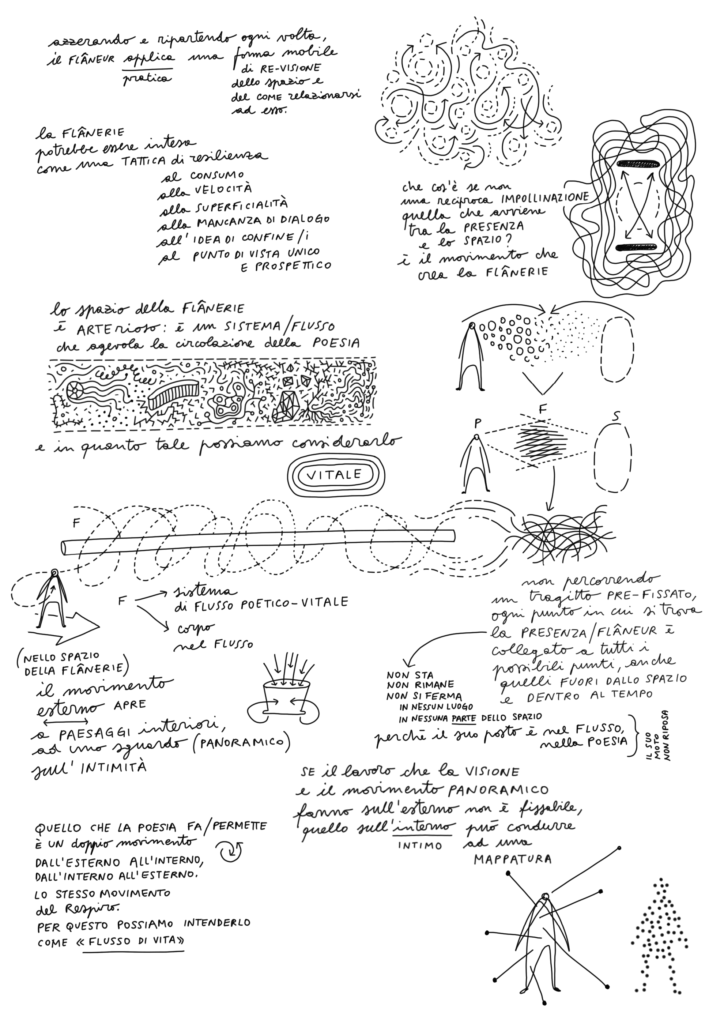 azzerando e ripartendo ogni volta,
il FLÂNEUR applica una forma mobile
pratica
di RE-VISIONE
dello spazio e
del COME relazionarsi
ad esso.
la FLÂNERIE
potrebbe essere intesa
come una TATTICA di resilienza
al CONSUMO
alla VELOCITÀ
alla SUPERFICIALITÀ
alla MANCANZA DI DIALOGO
all'IDEA DI CONFINE/i
al PUNTO DI VISTA UNICO
E PROSPETTICO
che cos'è se non
una reciproca IMPOLLINAZIONE
quella che avviene
tra la PRESENZA
e lo SPAZIO?
è il movimento che
crea la FLÂNERIE
lo spazio della FLÂNERIE
È ARTErioso: è un SISTEMA/FLUSSO
che agevola la circolazione della POESIA
e in quanto tale possiamo considerarlo
VITALE
P F S
F
F
sistema
di FLUSSO POETICO-VITALE
corpo
nel FLUSSO
(NELLO SPAZIO
DELLA FLÂNERIE)
il movimento
esterno APRE
a PAESAGGI interiori,
ad uno sguardo (PANORAMICO)
sull'INTIMITÀ
non percorrendo
un tragitto PRE-FISSATO,
ogni punto in cui si trova
la PRESENZA/FLÂNEUR È
collegato a tutti i
possibili punti, anche
quelli FUORI DALLO SPAZIO
e DENTRO AL TEMPO
NON STA
NON RIMANE
NON SI FERMA
IN NESSUN LUOGO
IN NESSUNA PARTE DELLO SPAZIO
perché il suo posto è nel FLUSSO,
nella POESIA
IL SUO
MOTO
NON RIPOSA
SE il lavoro che la VISIONE
e il movimento PANORAMICO
fanno sull'esterno non è fissabile,
quello sull'interno può condurre
INTIMO
ad una
MAPPATURA
QUELLO CHE LA POESIA FA/PERMETTE
È UN doppio movimento
DALL'ESTERNO ALL'INTERNO,
DALL'INTERNO ALL'ESTERNO.
LO STESSO MOVIMENTO
del Respiro.
PER QUESTO POSSIAMO INTENDERLO
COME «FLUSSO DI VITA»